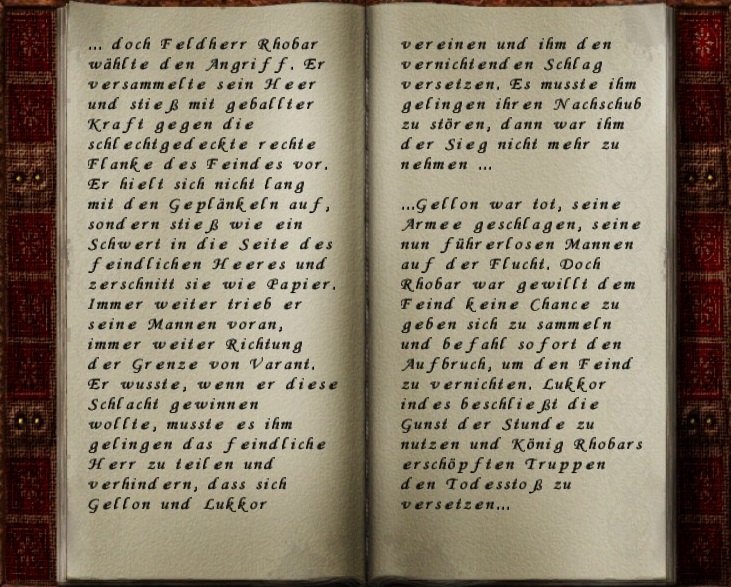 ... doch Feldherr Rhobar
wählte den Angriff. Er
versammelte sein Heer
und stieß mit geballter
Kraft gegen die
schlechtgedeckte rechte
Flanke des Feindes vor.
Er hielt sich nicht lang
mit den Geplänkeln auf,
sondern stieß wie ein
Schwert in die Seite des
feindlichen Heeres und
zerschnitt sie wie Papier.
Immer weiter trieb er
seine Mannen voran,
immer weiter Richtung
der Grenze von Varant.
Er wusste, wenn er diese
Schlacht gewinnen
wollte, musste es ihm
gelingen das feindliche
Herr zu teilen und
verhindern, dass sich
Gellon und Lukkor
vereinen und ihm den
vernichtenden Schlag
versetzen. Es musste ihm
gelingen ihren Nachschub
zu stören, dann war ihm
der Sieg nicht mehr zu
nehmen ...
...Gellon war tot, seine
Armee geschlagen, seine
nun führerlosen Mannen
auf der Flucht. Doch
Rhobar war gewillt dem
Feind keine Chance zu
geben sich zu sammeln
und befahl sofort den
Aufbruch, um den Feind
zu vernichten. Lukkor
indes beschließt die
Gunst der Stunde zu
nutzen und König Rhobars
erschöpften Truppen
den Todesstoß zu
versetzen...